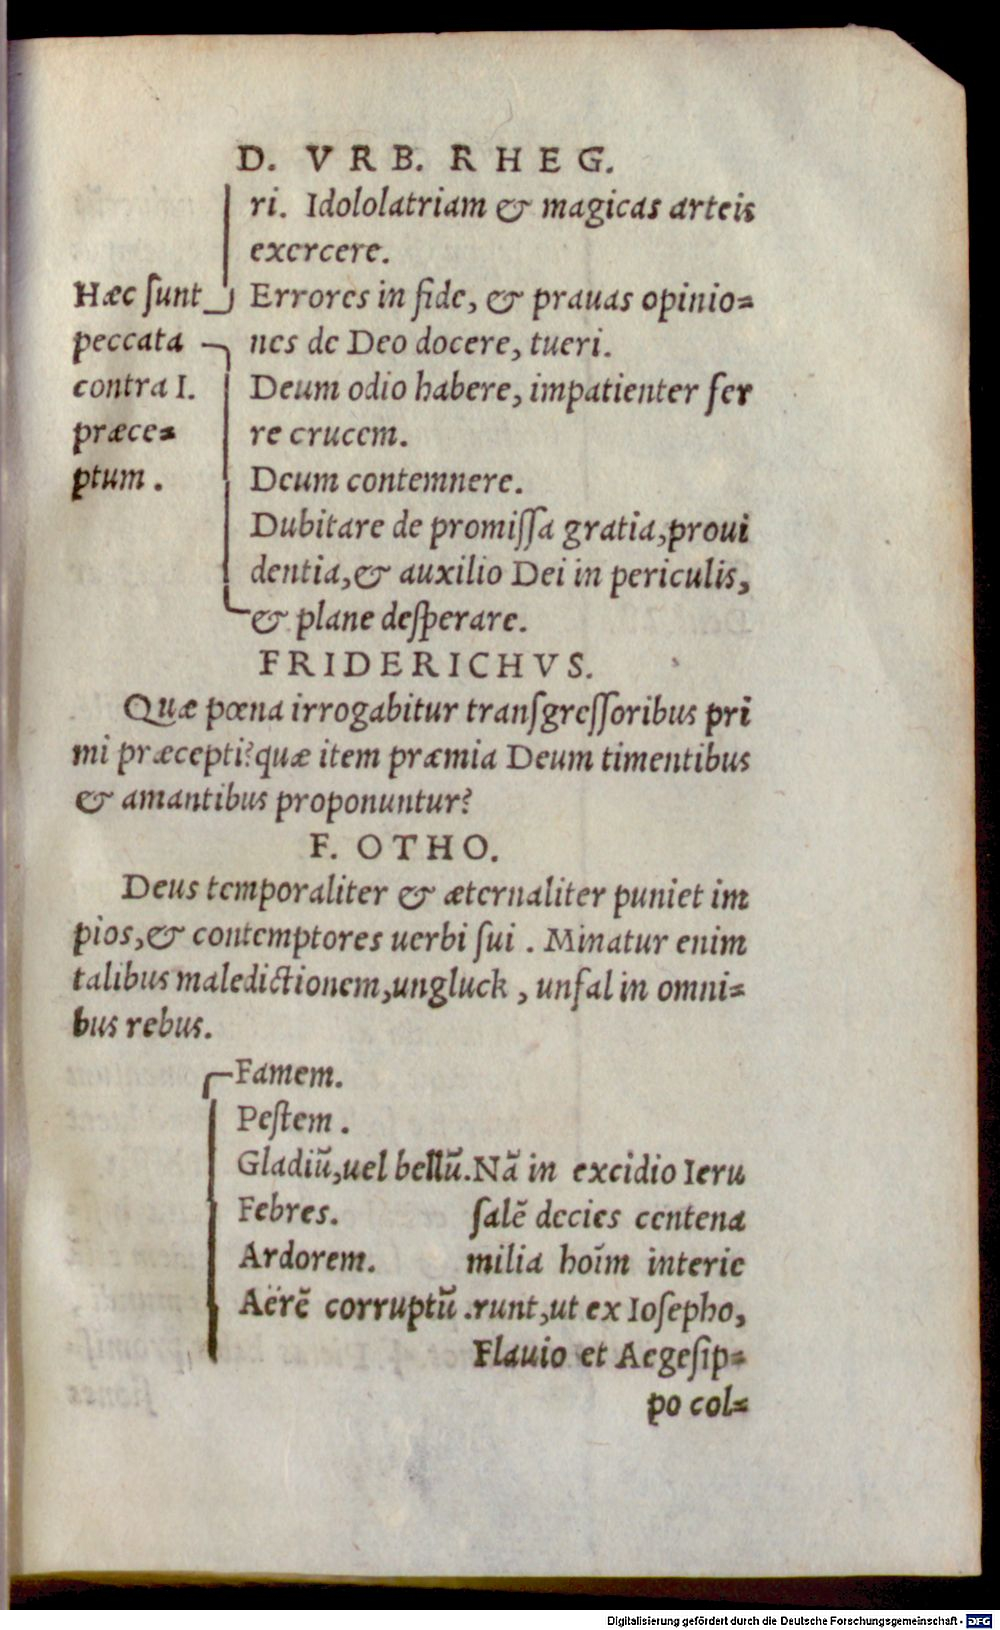 D. VRB. RHEG.
ri. Idololatriam & magicas arteis
exercere.
Hæc sunt
peccata
contra I.
præce=
ptum.
Errores in fide, & prauas opinio=
nes de Deo docere, tueri.
Deum odio habere, impatienter fer
re crucem.
Deum contemnere.
Dubitare de promissa gratia, proui
dentia, & auxilio Dei in periculis,
& plane desperare.
FRIDERICHVS.
Quæ pœna irrogabitur transgressoribus pri
mi præcepti? quæ item præmia Deum timentibus
& amantibus proponuntur?
F. OTHO.
Deus temporaliter & æternaliter puniet im
pios, & contemptores uerbi sui. Minatur enim
talibus maledictionem, ungluck, unfal in omni=
bus rebus.
Famem.
Pestem.
Gladiũ, uel bellũ. Nã in excidio Ieru
Febres. salẽ decies centena
Ardorem. milia hoĩm interie
Aërẽ corruptũ. runt, ut ex Iosepho,
Flauio et Aegesip=
po col=
Digitalisierung gefördert durch die Deutsche Forschungsgemeinschaft - DFG